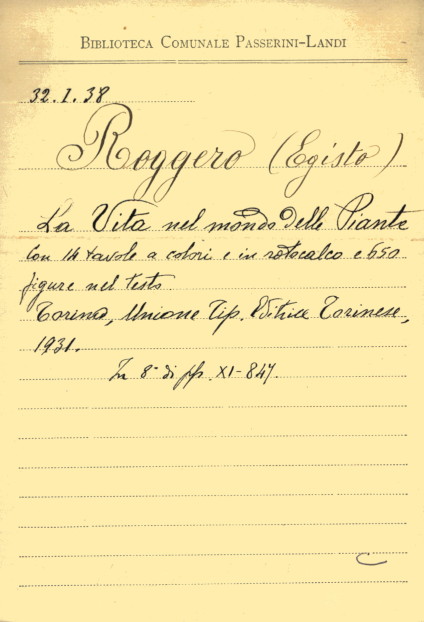 BIBLIOTECA COMUNALE PASSERINI-LANDI
32.I.38
Roggero (Egisto)
La Vita nel mondo delle Piante
Con 14 tavole a colori e in rotocalco e 650
figure nel testo.
Torino, Unione Tip. Editrice Torinese,
1931.
In 8° di pp. XI-847.
C